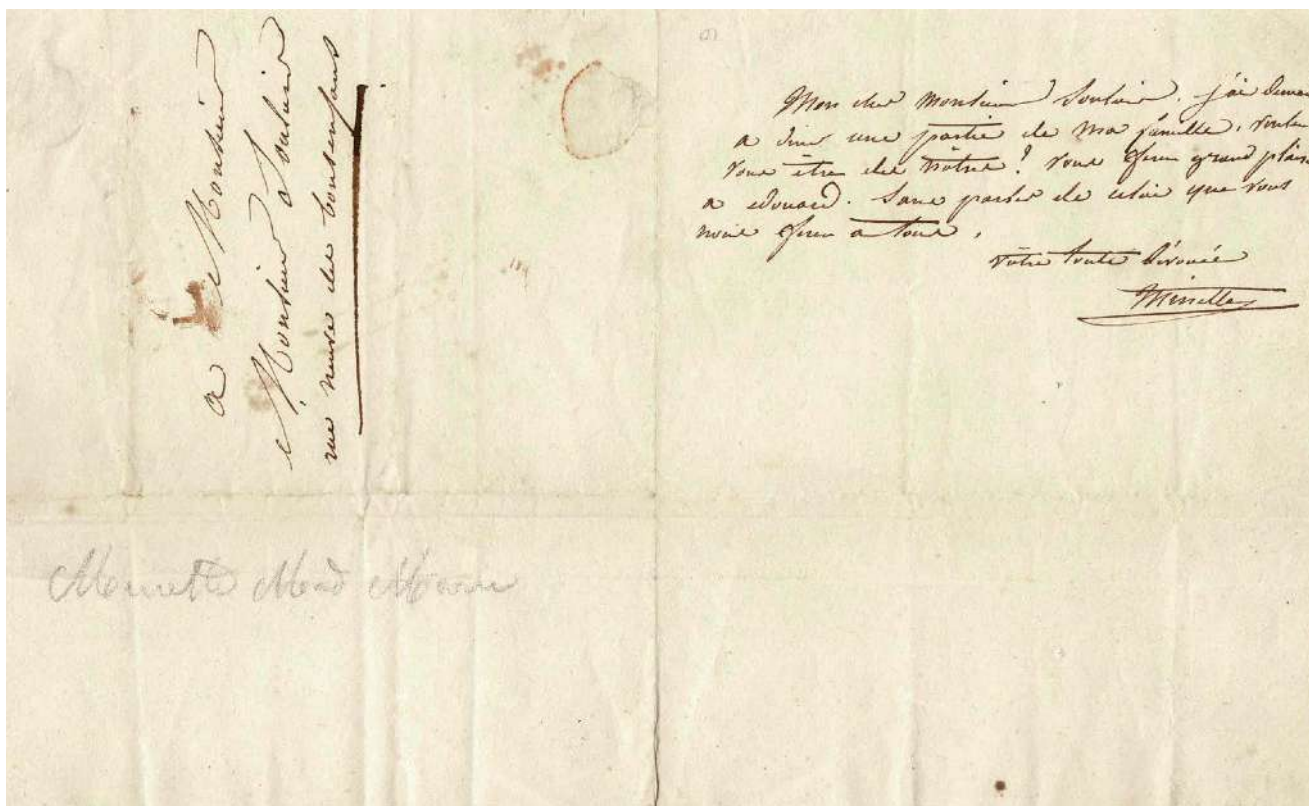 a Monsieur
Monsieur Soulair
rue neuve des bons enfans
Mon cher Monsieur Soulair. j'ai demain
a diner une partie de ma famille. voulez
vous être des nôtres ? vous ferez grand plaisir
a edouard. Sans parler de celui que vous
nous ferez a tous.
votre toute dévouée